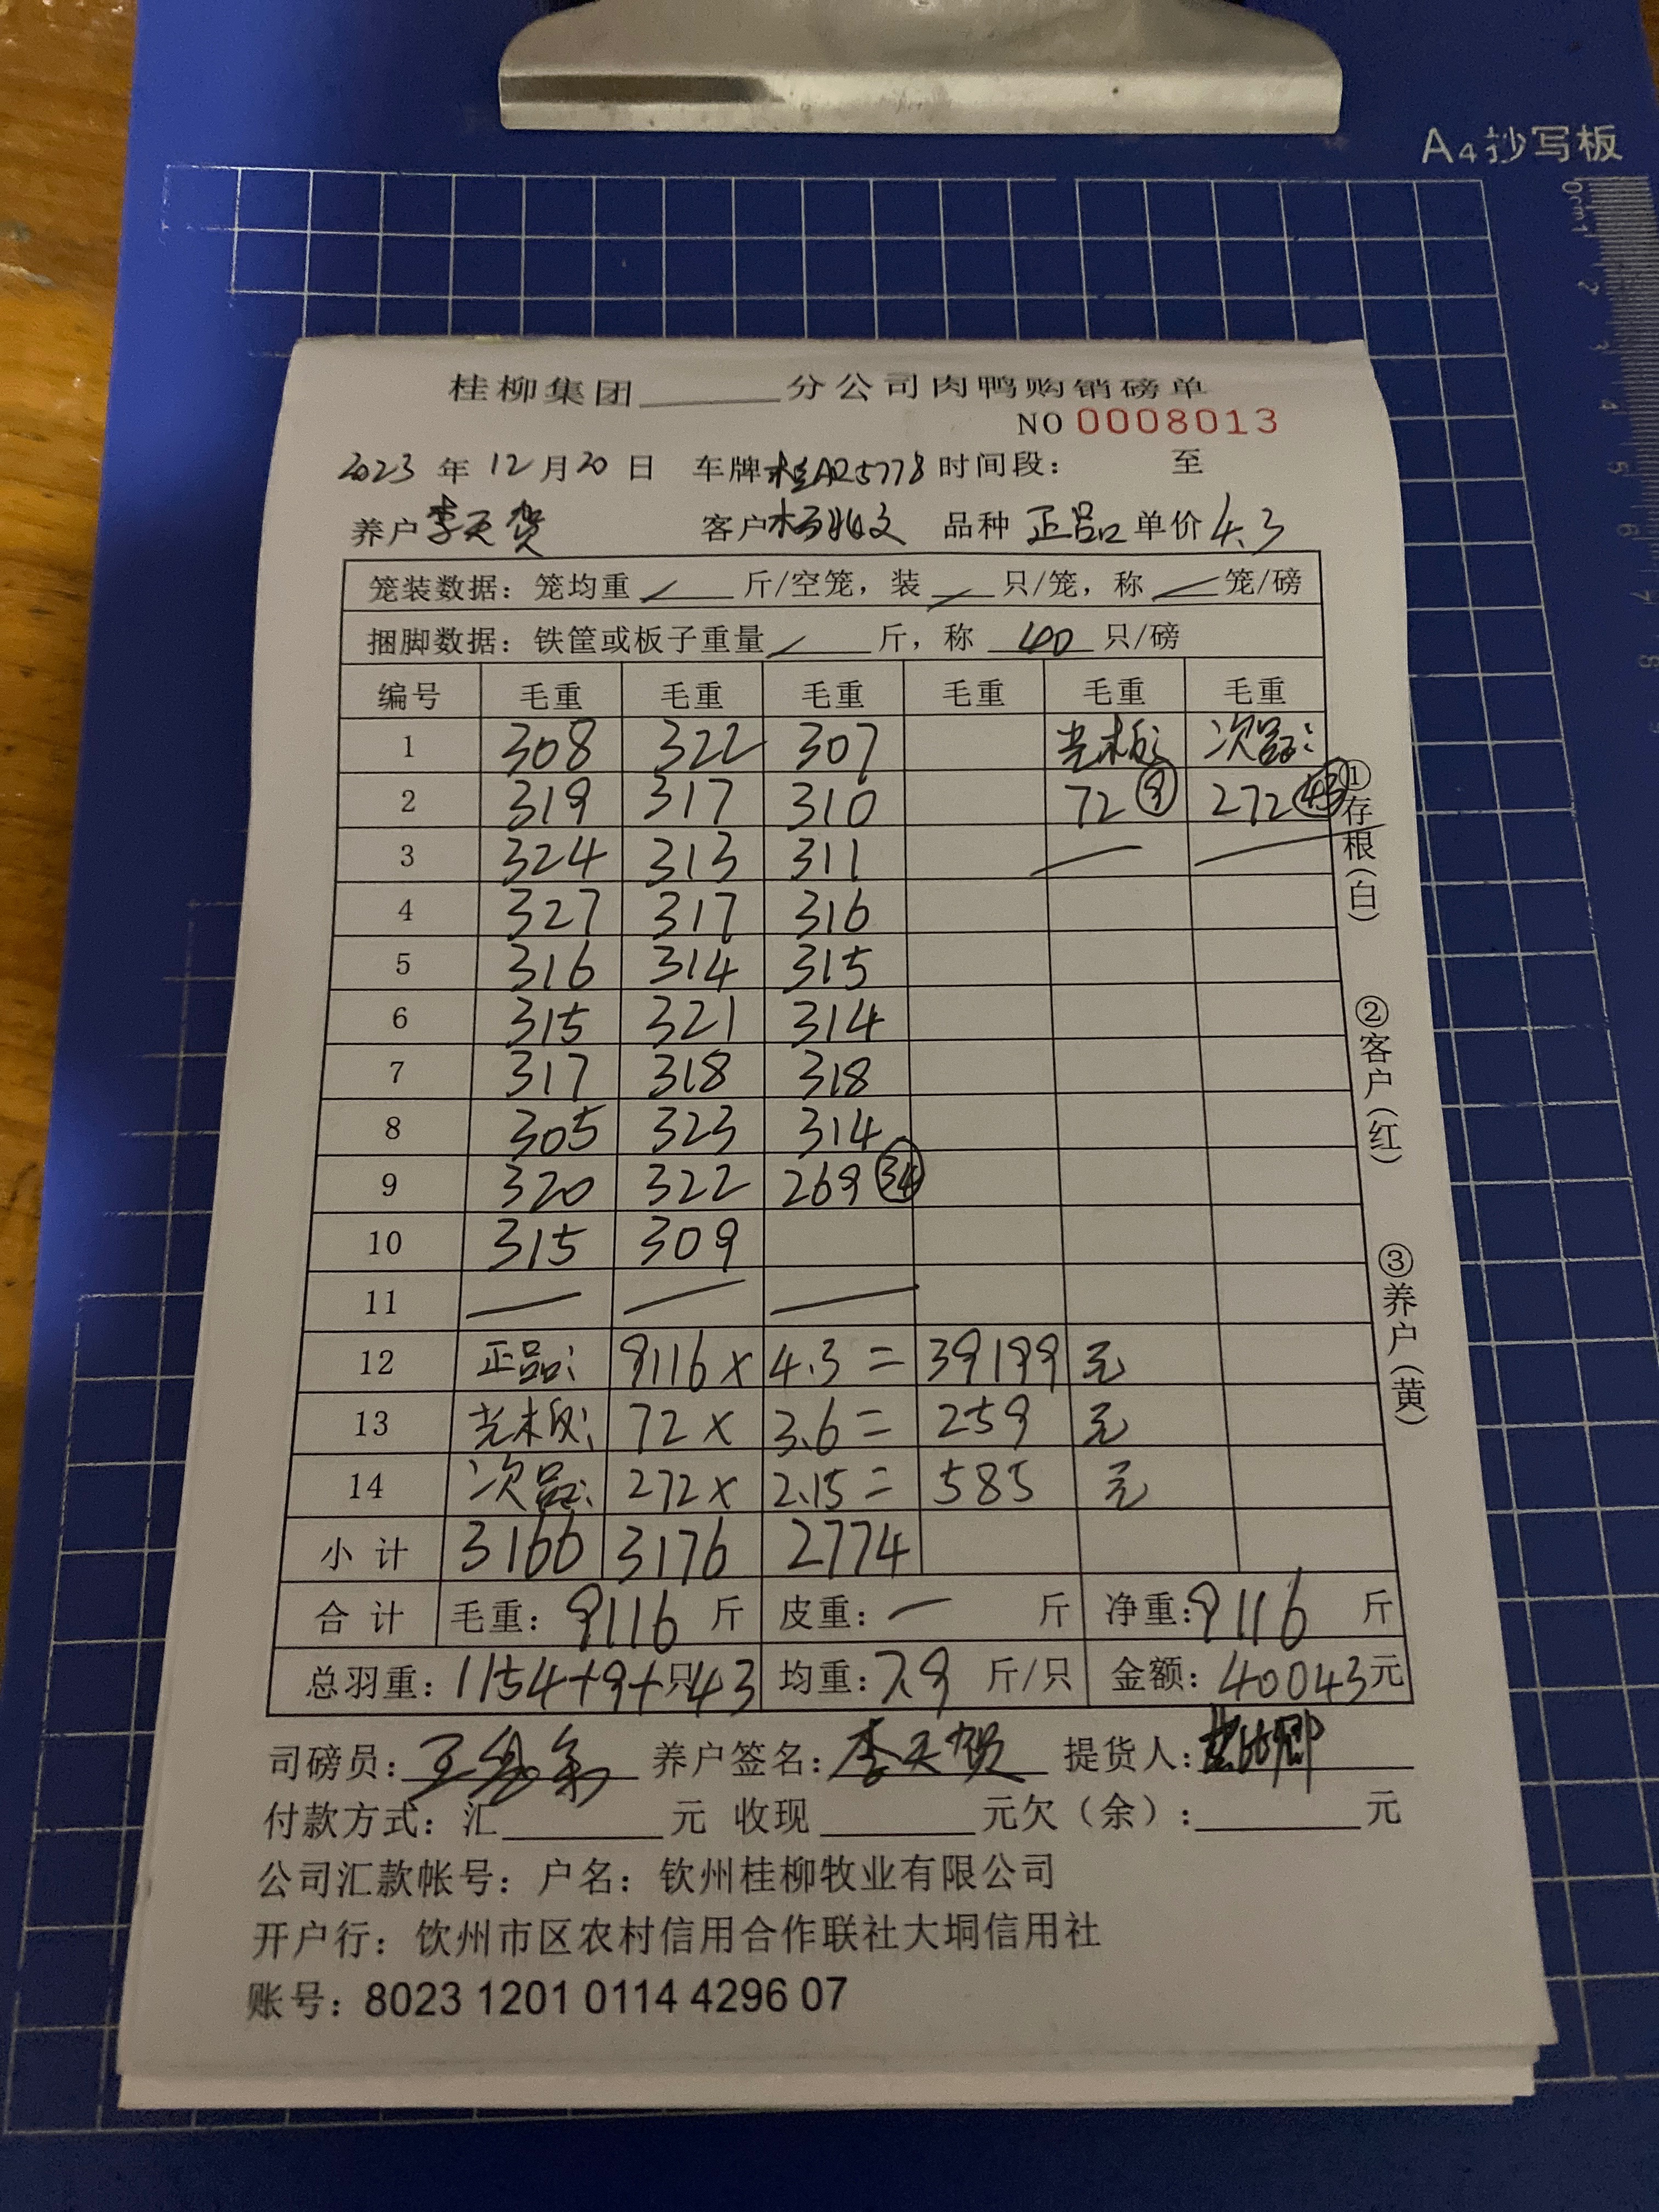 A4抄写板
0cm1 2 3 4 5 6 7 8
桂柳集团______分公司肉鸭购销磅单
NO 0008013
2023 年 12 月 20 日 车牌 桂AR5778 时间段: 至
养户 李天贺 客户 杨兆文 品种 正品 单价 4.3
笼装数据:笼均重 / 斤/空笼,装 / 只/笼,称 / 笼/磅
捆脚数据:铁筐或板子重量 / 斤,称 40 只/磅
编号 毛重 毛重 毛重 毛重 毛重 毛重
1 308 322 307 光板: 次品:
2 319 317 310 72 9 272 43
3 324 313 311
4 327 317 316
5 316 314 315
6 315 321 314
7 317 318 318
8 305 323 314
9 320 322 269 34
10 315 309
11
12 正品: 9116 × 4.3 = 39199 元
13 光板: 72 × 3.6 = 259 元
14 次品: 272 × 2.15 = 585 元
小计 3166 3176 2774
合计 毛重:9116 斤 皮重:一 斤 净重:9116 斤
总羽重:1154+9+43 只 均重:7.9 斤/只 金额:40043元
司磅员: 养户签名:李天贺 提货人:
付款方式:汇______元 收现______元欠(余):______元
公司汇款帐号:户名:钦州桂柳牧业有限公司
开户行:钦州市区农村信用合作联社大垌信用社
账号:8023 1201 0114 4296 07
①存根(白)
②客户(红)
③养户(黄)